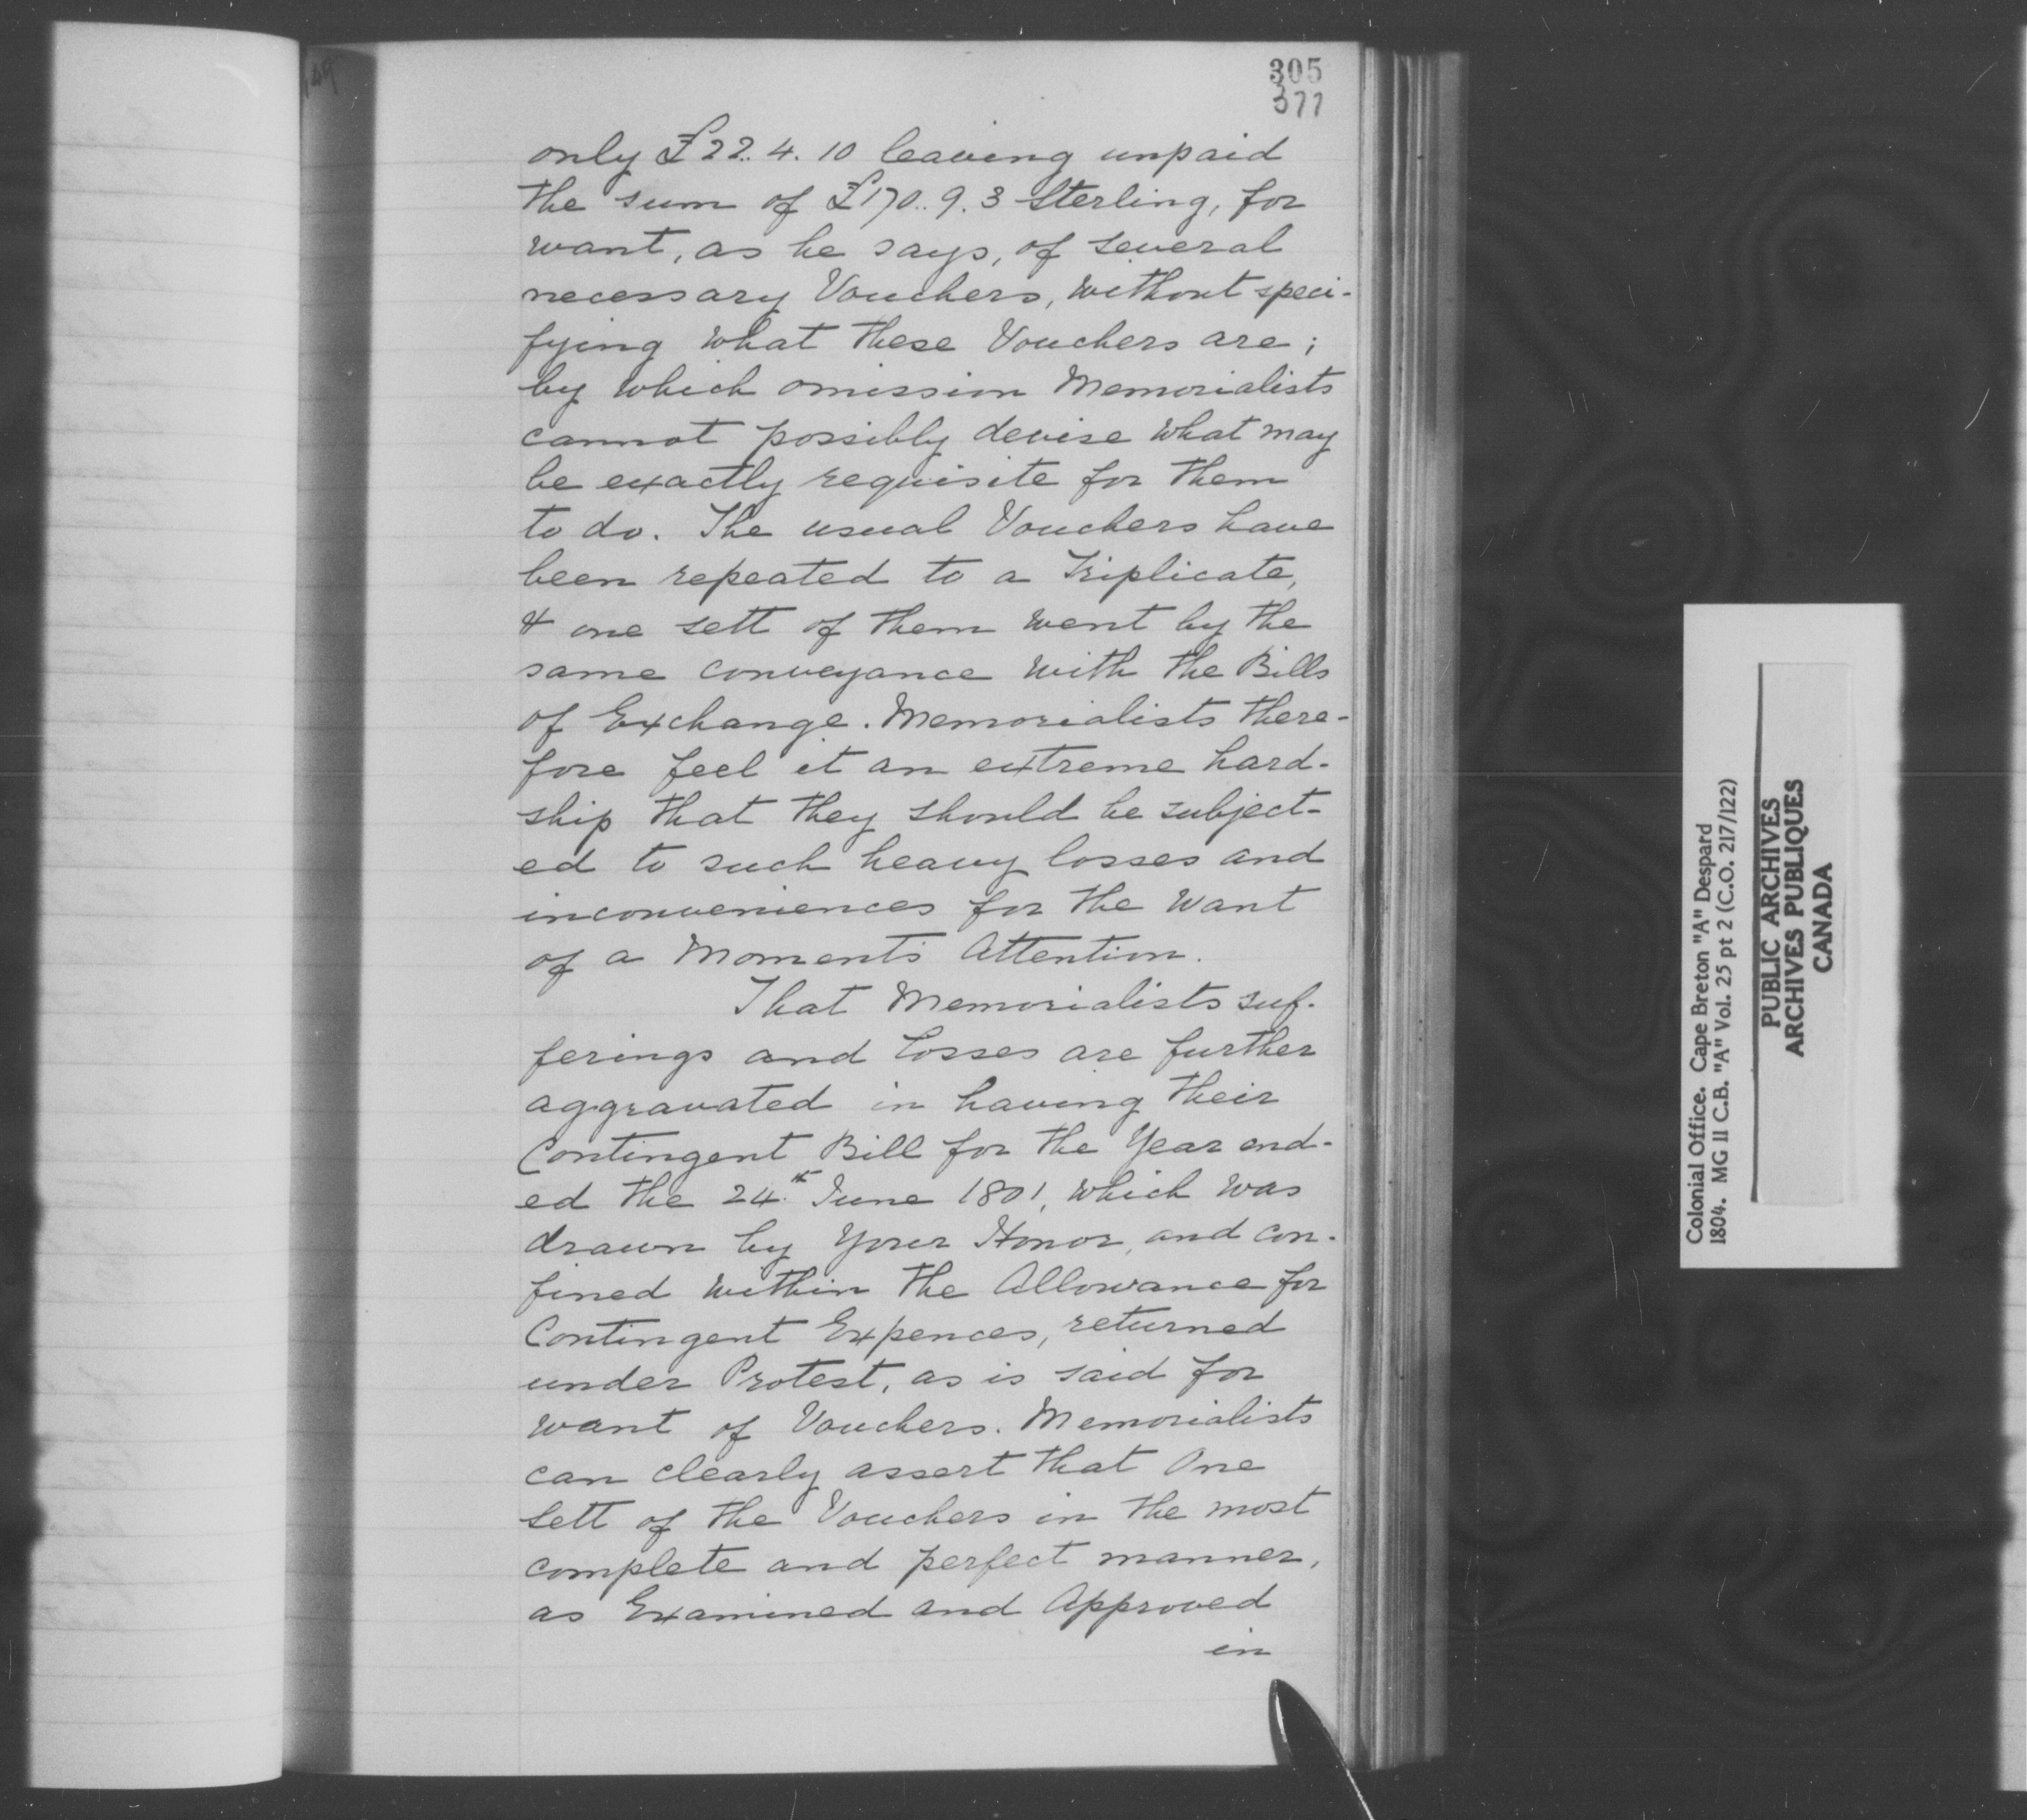 305
377
only £22.. 4. 10 leaving unpaid
the sum of £170.. 9. 3 Sterling, for
want, as he says, of several
necessary Vouchers, without speci-
fying what these Vouchers are;
by which omission Memorialists
cannot possibly devise what may
be exactly requisite for them
to do. The usual Vouchers have
been repeated to a Triplicate,
& one sett of them went by the
same conveyance with the Bills
of Exchange. Memorialists there-
fore feel it an extreme hard-
ship that they should be subject-
ed to such heavy losses and
inconveniences for the want
of a Moment's Attention.
That Memorialists suf-
ferings and losses are further
aggravated in having their
Contingent Bill for the Year end-
ed the 24th June 1801, which was
drawn by Your Honor, and con-
fined within the Allowance for
Contingent Expences, returned
under Protest, as is said for
want of Vouchers. Memorialists
can clearly assert that One
sett of the Vouchers in the most
complete and perfect manner,
as Examined and Approved
in
Colonial Office. Cape Breton "A" Despard
1804. MG 11 C.B. "A" Vol. 25 pt 2 (C.O. 217/122)
PUBLIC ARCHIVES
ARCHIVES PUBLIQUES
CANADA